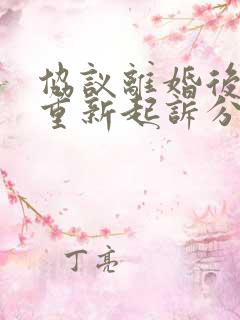 協議離婚後
重新起訴分
丁亮